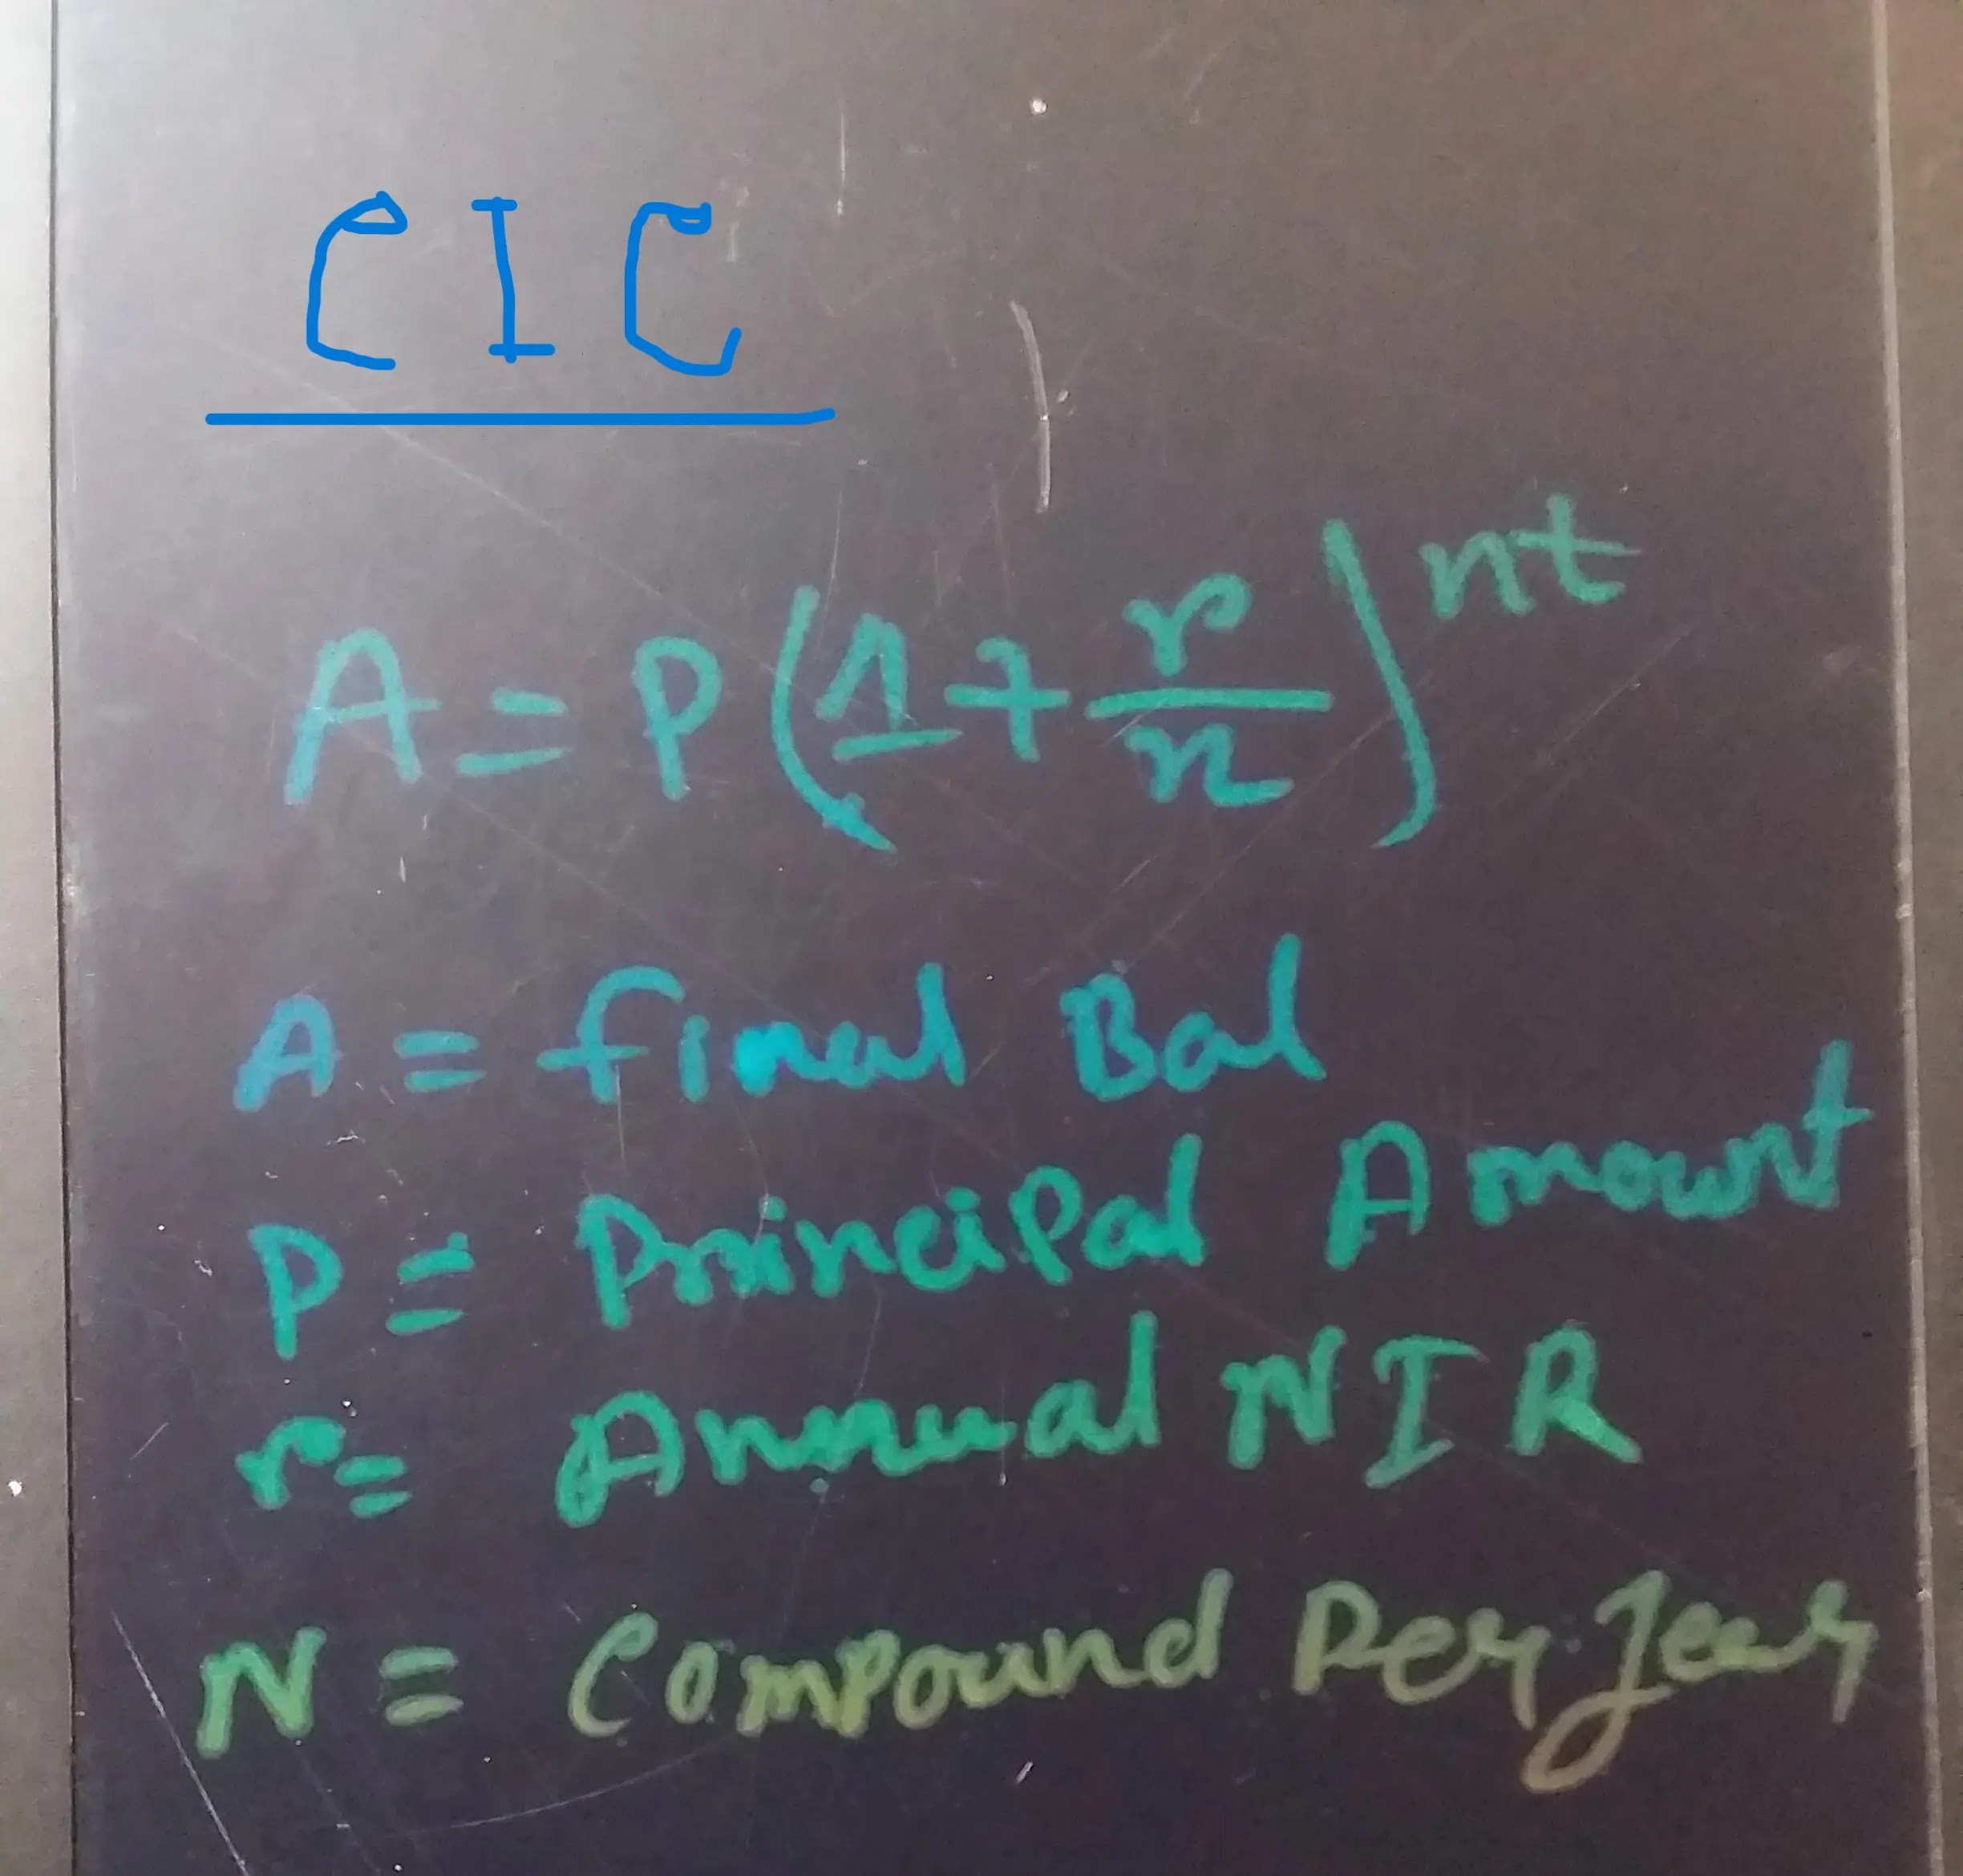 CIC
A = P(1 + r/n)^nt
A = final Bal
P = Principal Amount
r = Annual NIR
N = Compound Per Year